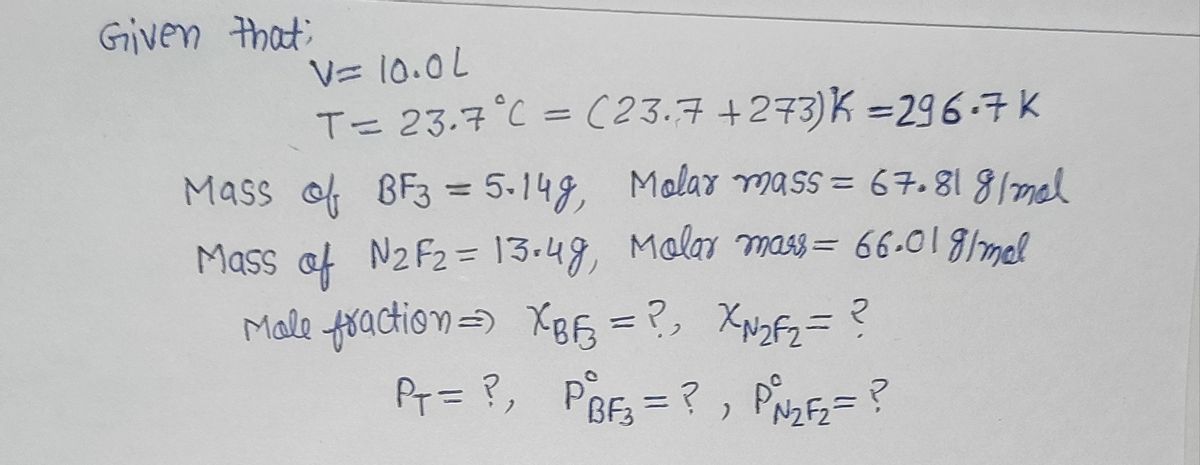 Given that;
V= 10.0L
T= 23.7°C = (23.7 +273)K =296.7 K
Mass of BF3 = 5.14g, Molar mass = 67.81 g/mol
Mass of N2F2 = 13.4g, Molar mass = 66.01 g/mol
Mole fraction => XBF3 = ?, XN2F2 = ?
PT = ?, P°BF3 = ?, P°N2F2 = ?